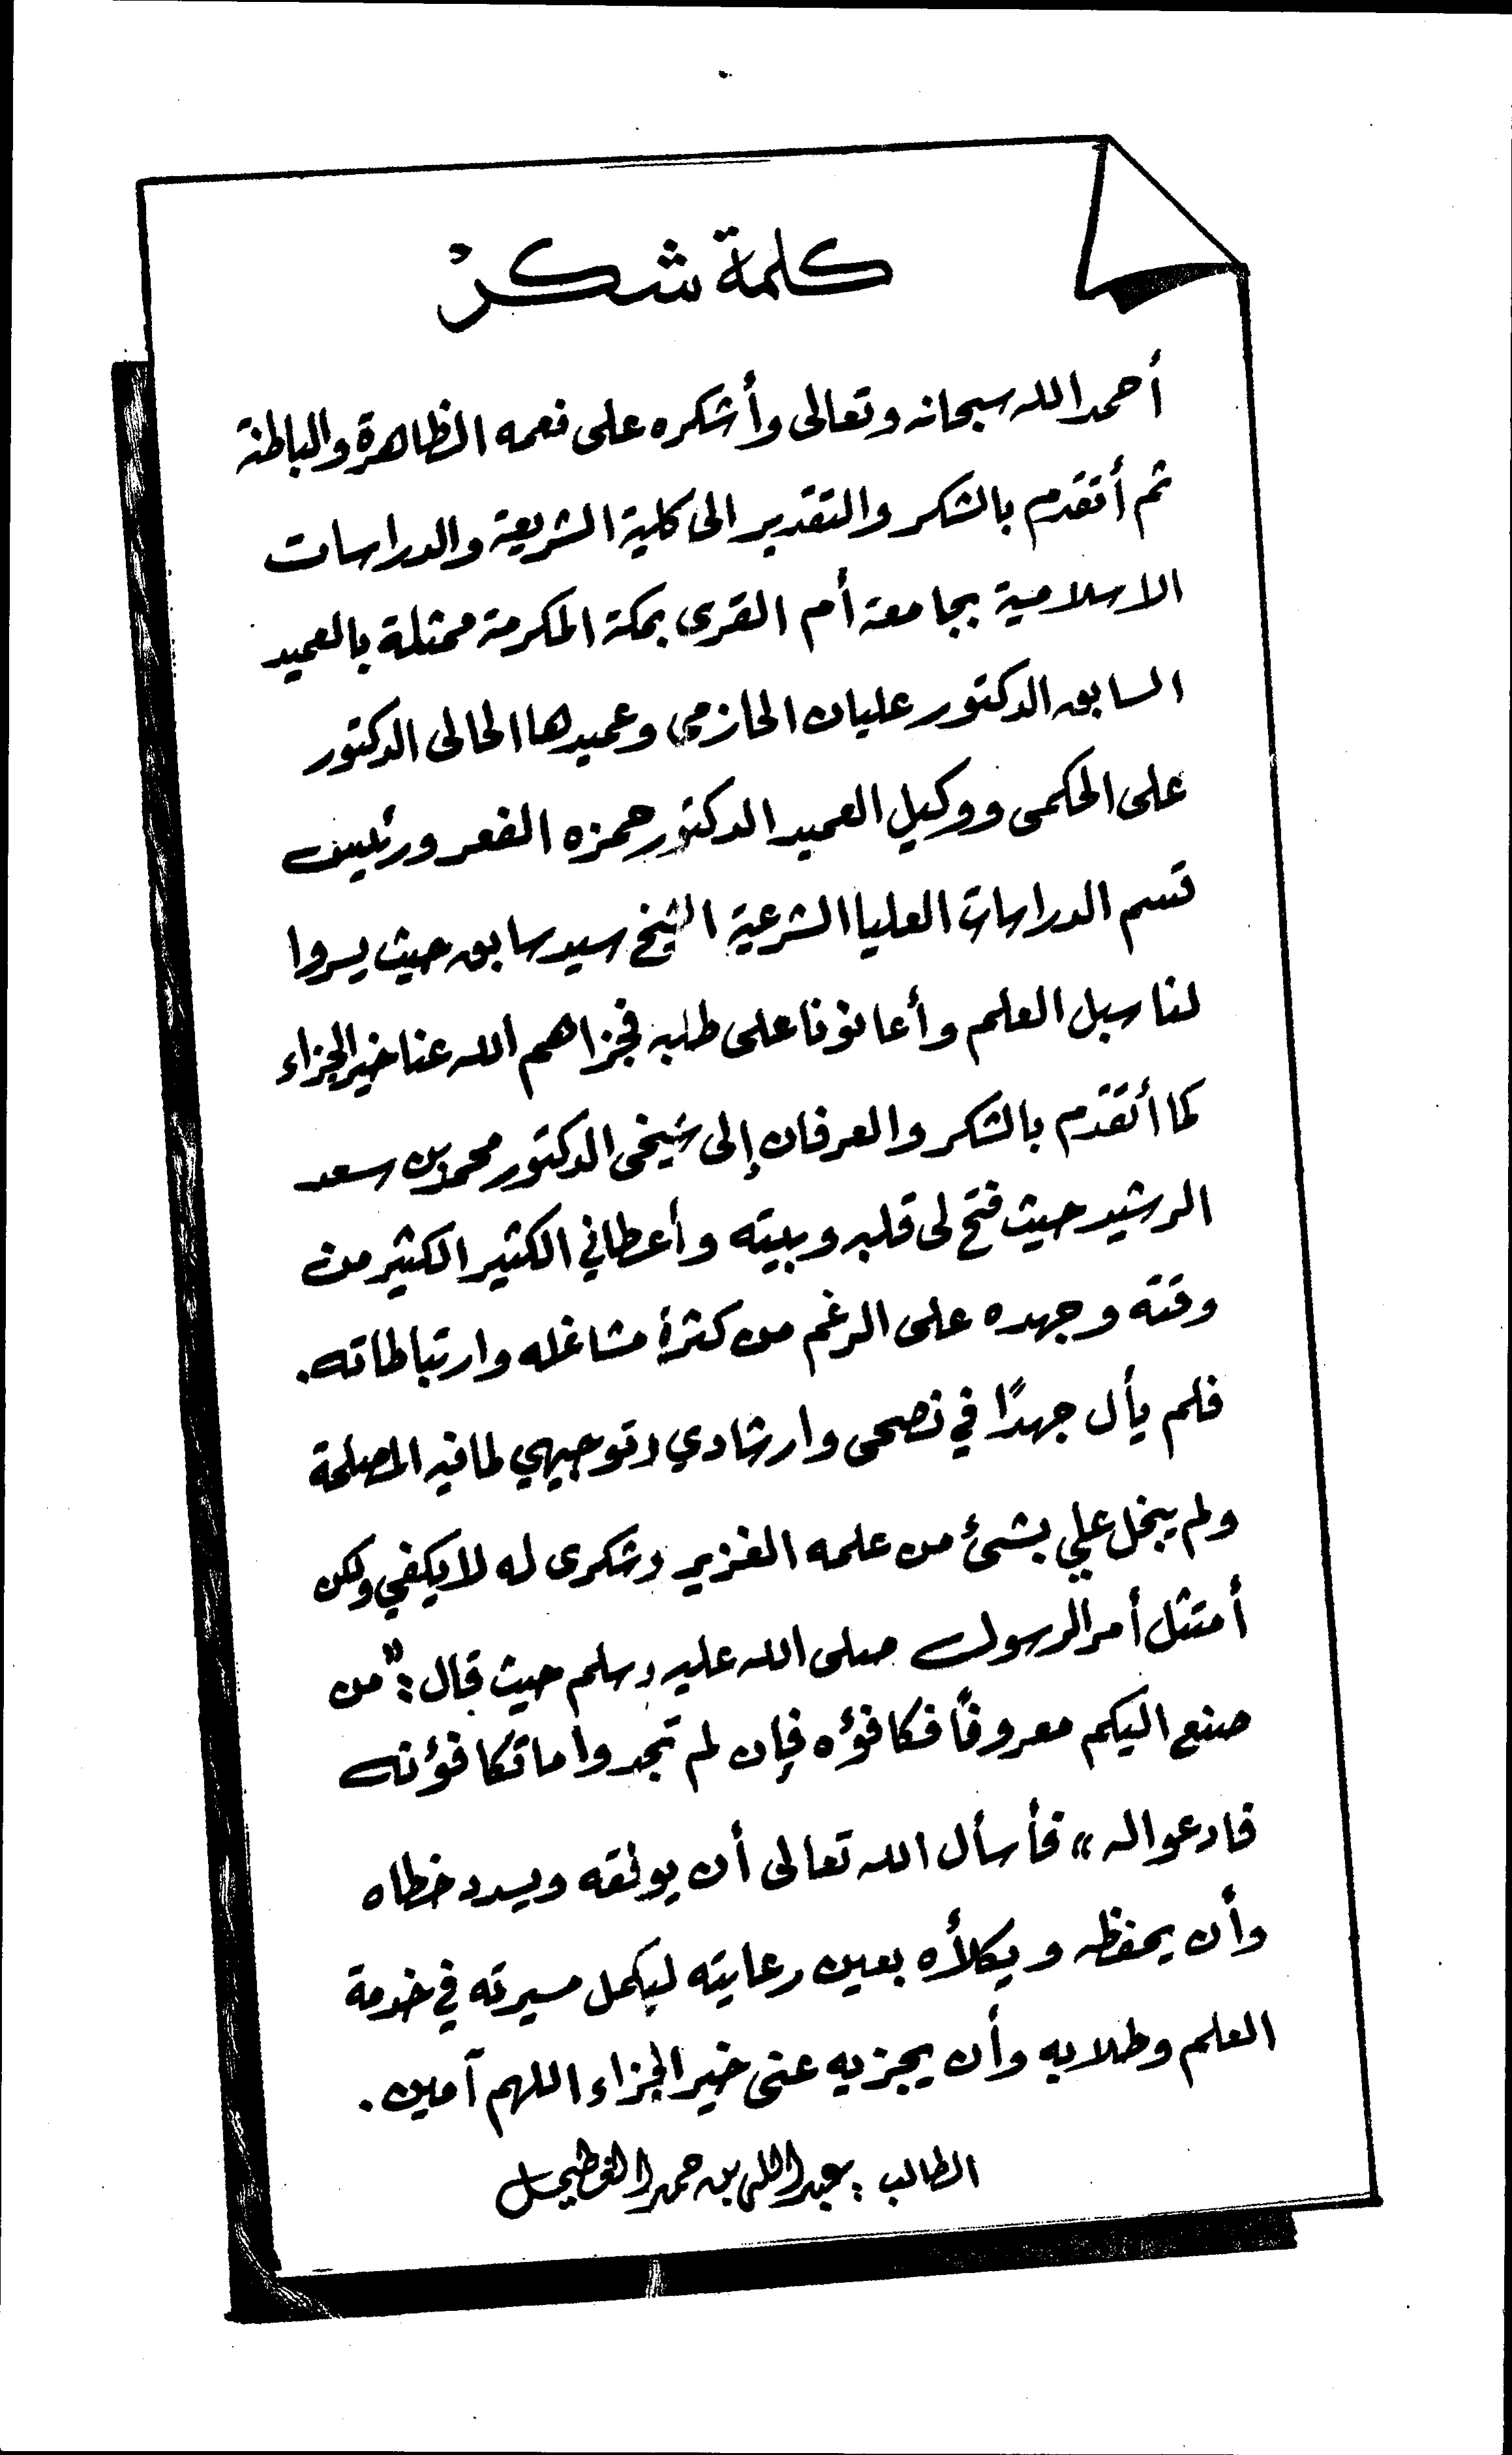 كلمة شكر
أحمد الله سبحانه وتعالى وأشكره على نعمه الظاهرة والباطنة
ثم أتقدم بالشكر والتقدير الى كلية الشريعة والدراسات
الاسلامية بجامعة أم القرى بمكة المكرمة ممثلة بالعميد
السابق الدكتور عليان الحازمي وعميدها الحالى الدكتور
على الحكمى ووكيل العميد الدكتور حمزه الفعر ورئيس
قسم الدراسات العليا الشرعية الشيخ سيد سابق حيث يسروا
لنا سبل العلم وأعانونا على طلبه فجزاهم الله عنا خير الجزاء
كما أتقدم بالشكر والعرفان إلى شيخى الدكتور محمد بن سعد
الرشيد حيث فتح لى قلبه وبيته وأعطاني الكثير الكثير من
وقته وجهده على الرغم من كثرة مشاغله وارتباطاته.
فلم يأل جهدًا في نصحى وارشادي وتوجيهي لما فيه المصلحة
ولم يبخل علي بشئ من علمه الغزير وشكرى له لا يكفي ولكن
أمتثل أمر الرسول صلى الله عليه وسلم حيث قال: "من
صنع اليكم معروفًا فكافؤه فإن لم تجدوا ما تكافؤنه
فادعوا له" فأسأل الله تعالى أن يوفقه ويسدد خطاه
وأن يحفظه ويكلأه بعين رعايته ليكمل مسيرته في خدمة
العلم وطلابه وأن يجزيه عنى خير الجزاء اللهم آمين.
الطالب: عبدالله بن حمد الغطيمل